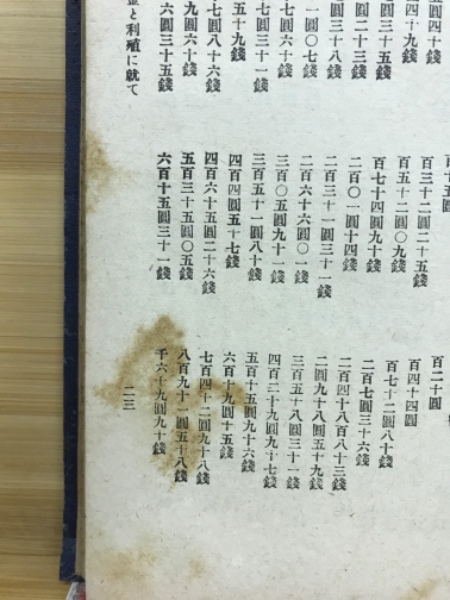 圓四十錢
四十九錢
圓三十五錢
圓二十三錢
圓三十八錢
一圓〇七錢
七圓六十錢
七圓三十一錢
五十九錢
七圓八十六錢
九圓六十錢
六圓三十五錢
百三十二圓二十五錢
百五十二圓〇九錢
百七十四圓九十錢
二百〇一圓十四錢
二百三十一圓三十一錢
二百六十六圓〇一錢
三百〇五圓九十一錢
三百五十一圓八十錢
四百四圓五十七錢
四百六十五圓二十六錢
五百三十五圓〇五錢
六百十五圓三十一錢
百二十圓
百四十四圓
百七十二圓八十錢
二百七圓三十六錢
二百四十八百八十三錢
二圓九十八圓五十九錢
三百五十八圓三十一錢
四百二十九圓九十七錢
五百十五圓九十六錢
六百十九圓十五錢
七百四十二圓九十八錢
八百九十一圓五十八錢
千六十九圓九十錢
金と利殖に就て
二三